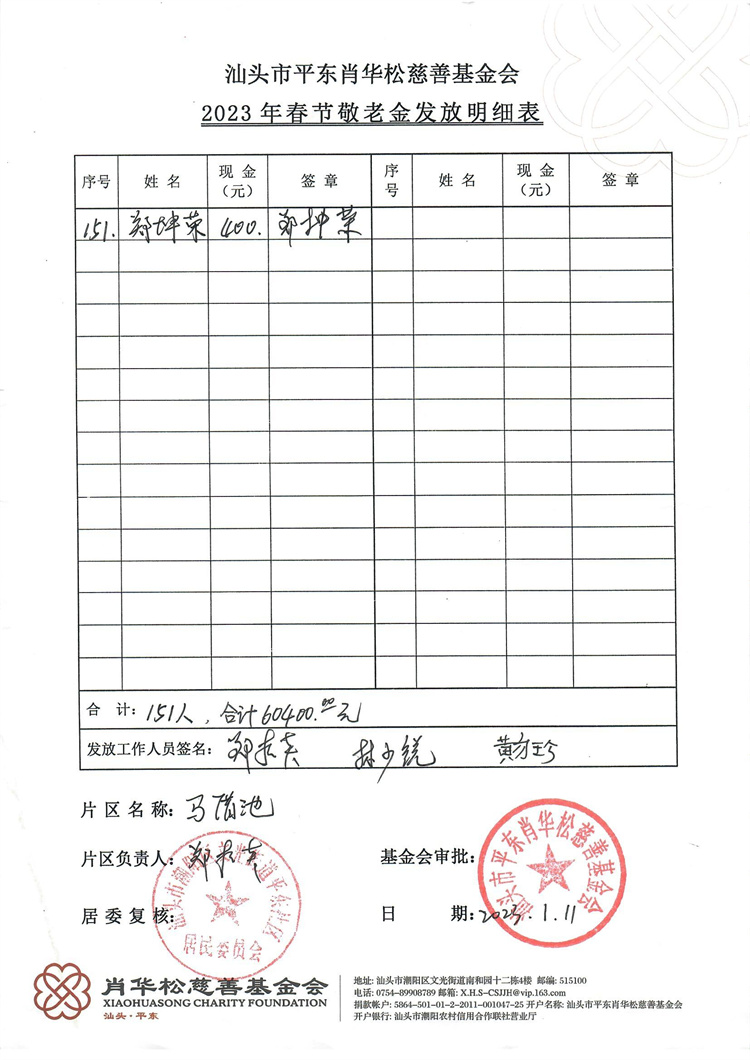 汕头市平东肖华松慈善基金会
2023 年春节敬老金发放明细表
序号 姓 名 现 金（元） 签 章 序号 姓 名 现 金（元） 签 章
151. 郑坤荣 400. 郑坤荣
合 计: 151人，合计60400.00元
发放工作人员签名: 林少锐 黄
片 区 名 称: 马 池
片区负责人: 郑
基金会审批:
汕头市平东肖华松慈善基金会
居 委 复 核:
平东社区
居民委员会
日 期: 2023.1.11
肖华松慈善基金会
XIAOHUASONG CHARITY FOUNDATION
汕头·平东
地址: 汕头市潮阳区文光街道南和园十二栋4楼 邮编: 515100
电话: 0754-89908789 邮箱: X.H.S-CSJJH@vip.163.com
捐款帐户: 5864-501-01-2-2011-001047-25 开户名称: 汕头市平东肖华松慈善基金会
开户银行: 汕头市潮阳农村信用合作联社营业厅